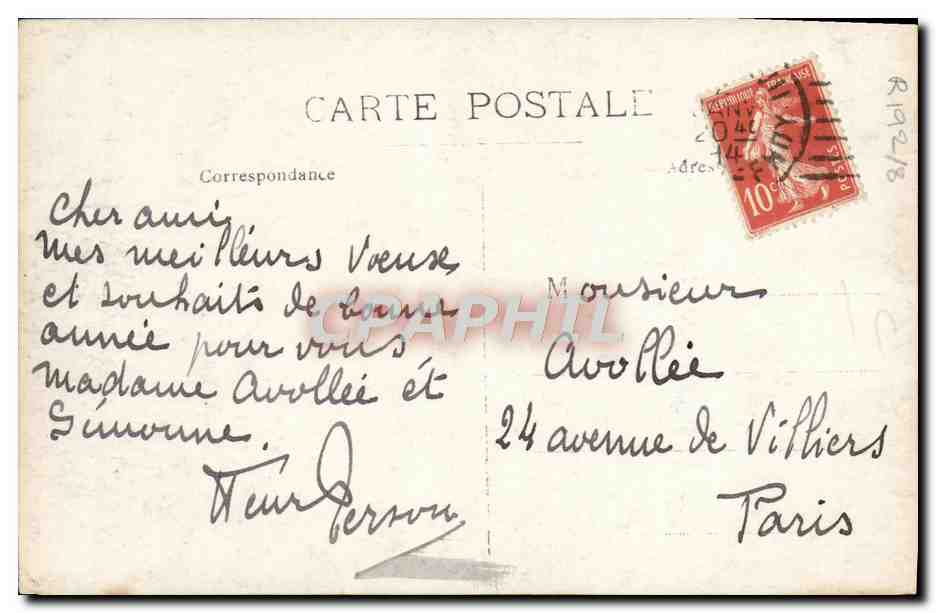 CARTE POSTALE
Correspondance
Adres
RÉPUBLIQUE FRANÇAISE
10c
POSTES
20
14
R192/8
Cher ami,
Mes meilleurs Voeux
et souhaits de bonne
année pour vous
Madame Avollée et
Simonne.
Henr Person
Monsieur
Avollée
24 avenue de Villiers
Paris
CPAPHIL